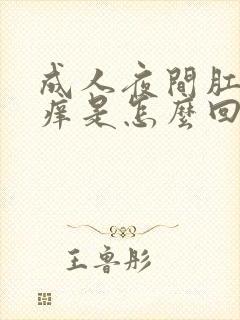 成人夜間肛
癢是怎麼回
王魯彤